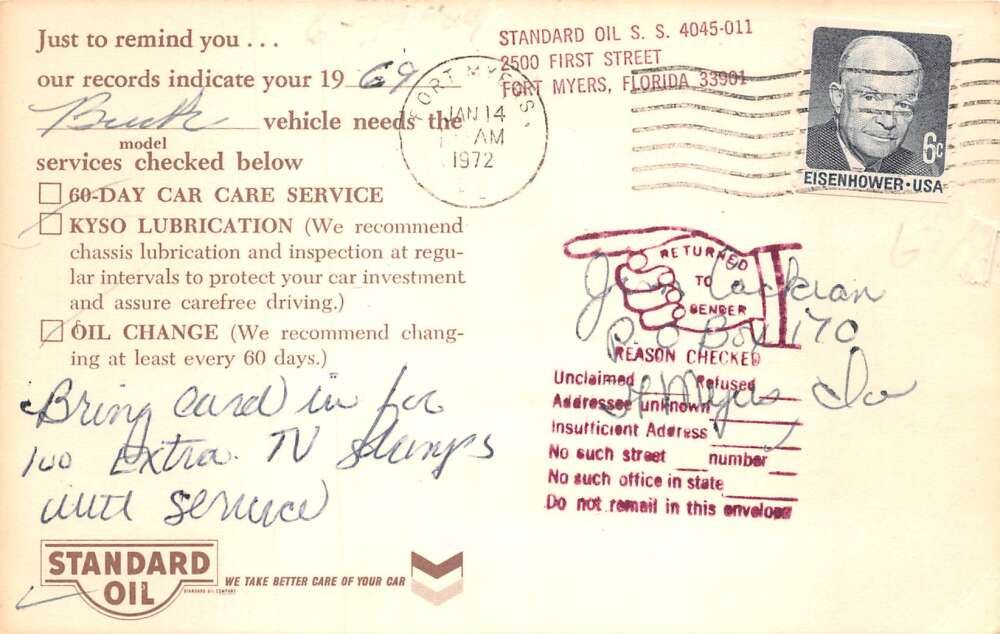 Just to remind you . . .
our records indicate your 19 69
Buick vehicle needs the
model
services checked below
60-DAY CAR CARE SERVICE
KYSO LUBRICATION (We recommend
chassis lubrication and inspection at regu-
lar intervals to protect your car investment
and assure carefree driving.)
OIL CHANGE (We recommend chang-
ing at least every 60 days.)
Bring card in for
100 Extra TV Stamps
with service
STANDARD
OIL
STANDARD OIL COMPANY
WE TAKE BETTER CARE OF YOUR CAR
STANDARD OIL S. S. 4045-011
2500 FIRST STREET
FORT MYERS, FLORIDA 33901
FORT MYERS
JAN 14
AM
1972
6c
EISENHOWER·USA
RETURNED
TO
SENDER
P. O Box 170
Ft Myers Fla
REASON CHECKED
Unclaimed Refused
Addressee unknown
Insufficient Address
No such street number
No such office in state
Do not remail in this envelope